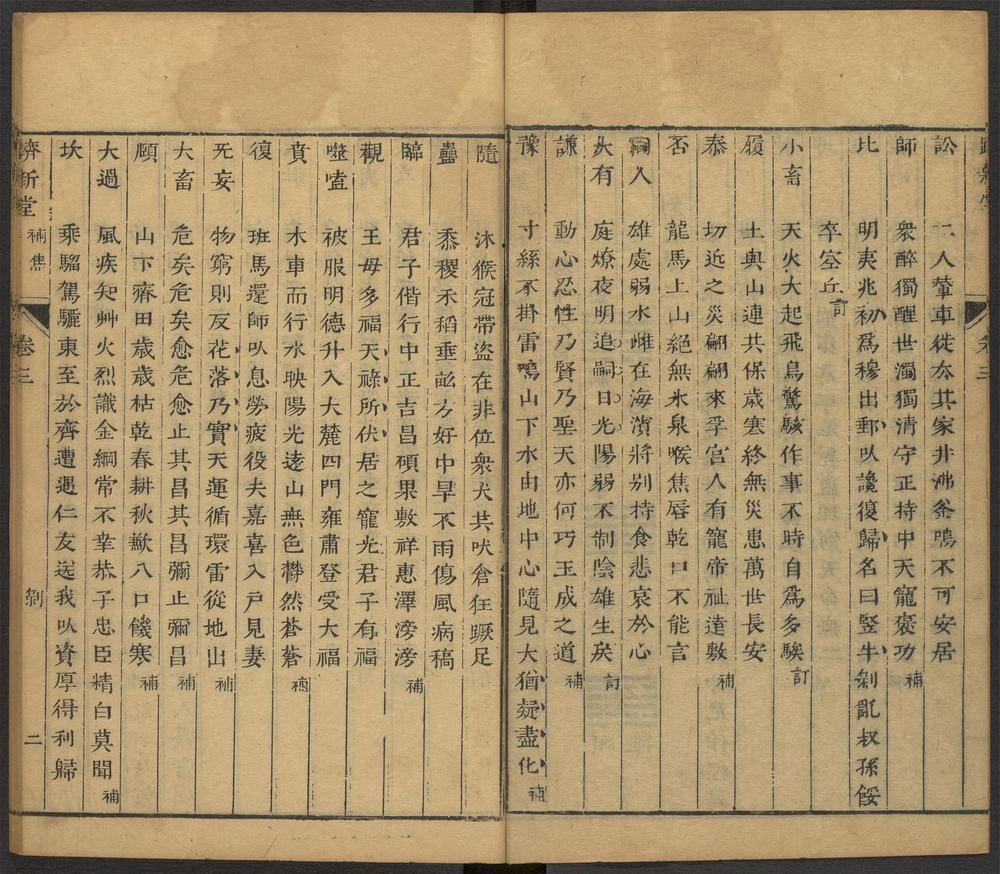 訟　二人輦車徙去其家井沸釜鳴不可安居
師　衆醉獨醒世濁獨清守正持中天寵褒功補
比　明夷兆初爲穆出郵以讒復歸名曰豎牛剝亂叔孫餒
卒室丘訂
小畜　天火大起飛鳥驚駭作事不時自爲多騃訂
履　土與山連共保歲寒終無災患萬世長安
泰　切近之災翩翩來孚宮人有寵帝祉達敷補
否　龍馬上山絕無水泉喉焦唇乾口不能言
同人　雄處弱水雌在海濱將別持食悲哀於心
大有　庭燎夜明追嗣日光陽弱不制陰雄生戾訂
謙　動心忍性乃賢乃聖天亦何巧玉成之道補
豫　寸絲不掛雷鳴山下水由地中心隨見大猶疑盡化補
隨　沐猴冠帶盜在非位衆犬共吠倉狂蹶足
蠱　黍稷禾稻垂畝方好中旱不雨傷風病稿
臨　君子偕行中正吉昌碩果敷祥惠澤滂滂補
觀　王母多福天祿所伏居之寵光君子有福
噬嗑　被服明德升入大麓四門雍肅登受大福
賁　木車而行水映陽光遠山無色欝然蒼蒼補
復　班馬還師以息勞疲役夫嘉喜入戶見妻
无妄　物窮則反花落乃實天運循環雷從地出補
大畜　危矣危矣愈危愈止其昌其昌彌止彌昌補
頤　山下齋田歲歲枯乾春耕秋歉八口饑寒補
大過　風疾知艸火烈識金綱常不幸恭子忠臣精白莫聞補
坎　乘騮駕驪東至於齊遭遇仁友送我以資厚得利歸
新堂　補焦　卷三　剝　二